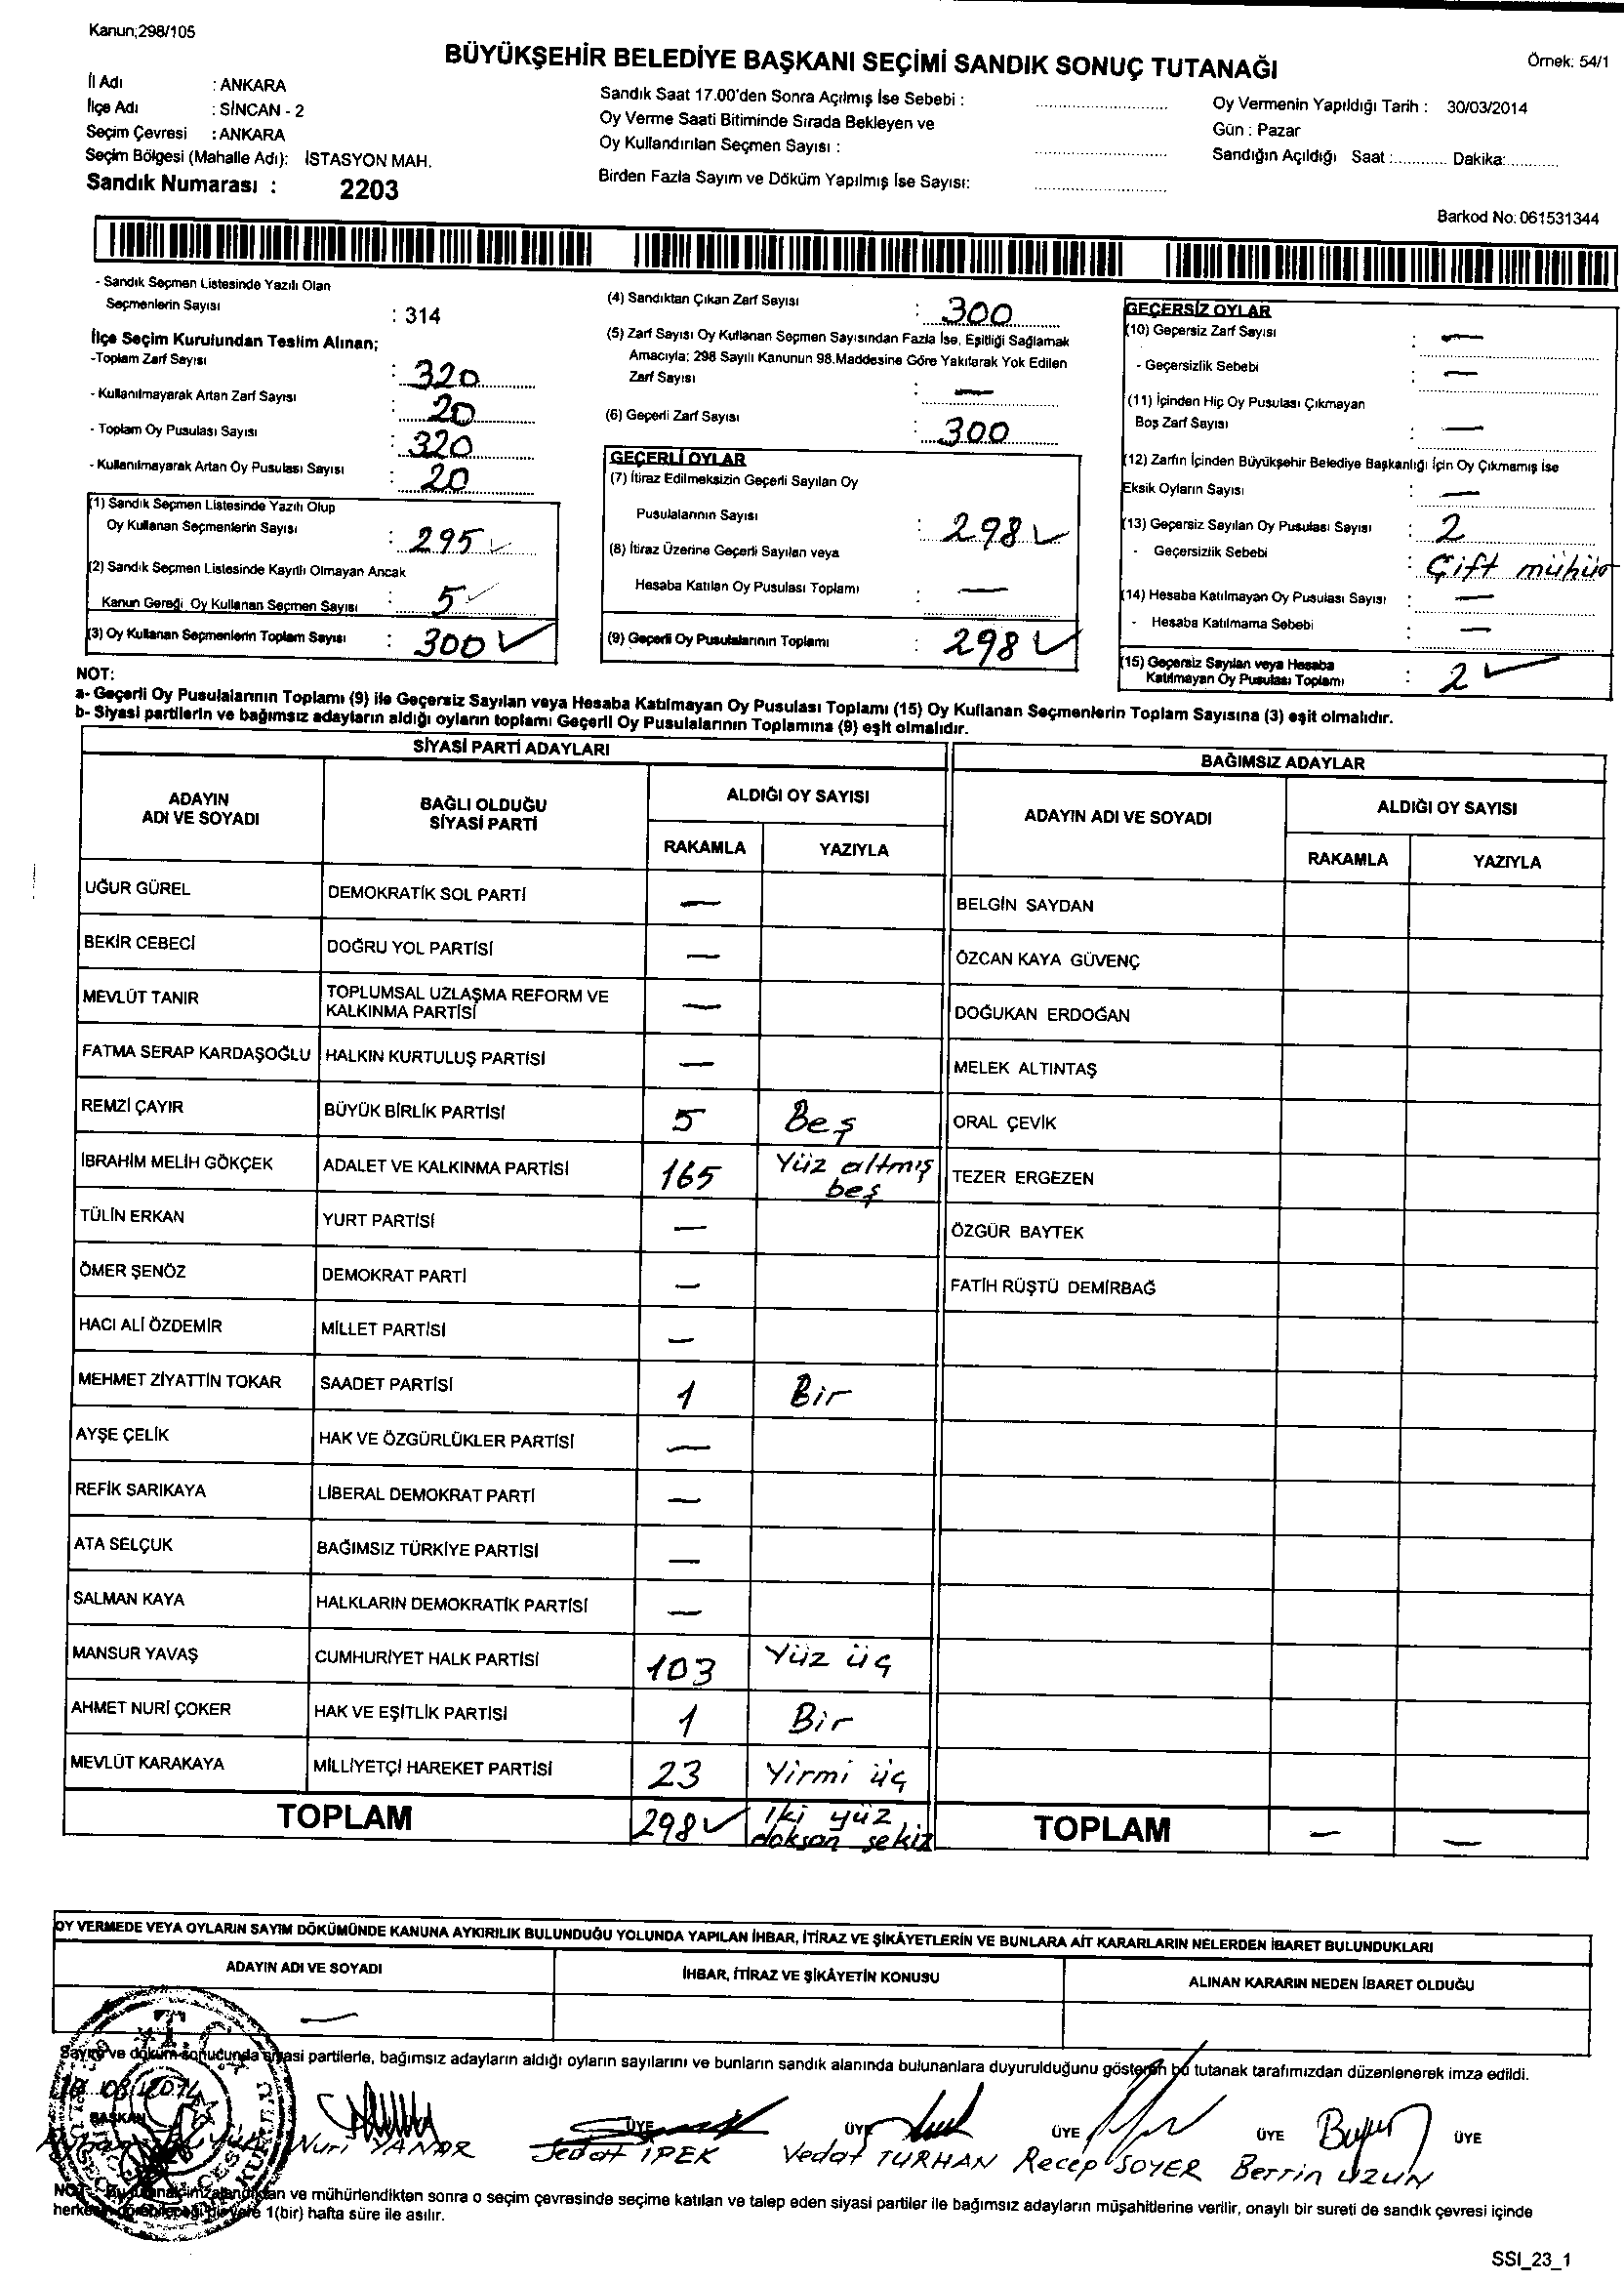 Kanun;298/105
BÜYÜKŞEHİR BELEDİYE BAŞKANI SEÇİMİ SANDIK SONUÇ TUTANAĞI
Örnek: 54/1
İl Adı : ANKARA
İlçe Adı : SİNCAN - 2
Seçim Çevresi : ANKARA
Seçim Bölgesi (Mahalle Adı): İSTASYON MAH.
Sandık Numarası : 2203
Sandık Saat 17.00'den Sonra Açılmış İse Sebebi :
Oy Verme Saati Bitiminde Sırada Bekleyen ve
Oy Kullandırılan Seçmen Sayısı :
Birden Fazla Sayım ve Döküm Yapılmış İse Sayısı:
Oy Vermenin Yapıldığı Tarih : 30/03/2014
Gün : Pazar
Sandığın Açıldığı Saat :............ Dakika:............
Barkod No: 061531344
- Sandık Seçmen Listesinde Yazılı Olan
Seçmenlerin Sayısı : 314
İlçe Seçim Kurulundan Teslim Alınan;
-Toplam Zarf Sayısı : 320
- Kullanılmayarak Artan Zarf Sayısı : 20
- Toplam Oy Pusulası Sayısı : 320
- Kullanılmayarak Artan Oy Pusulası Sayısı : 20
(1) Sandık Seçmen Listesinde Yazılı Olup
Oy Kullanan Seçmenlerin Sayısı : 295 ✓
(2) Sandık Seçmen Listesinde Kayıtlı Olmayan Ancak
Kanun Gereği Oy Kullanan Seçmen Sayısı : 5 ✓
(3) Oy Kullanan Seçmenlerin Toplam Sayısı : 300 ✓
(4) Sandıktan Çıkan Zarf Sayısı : 300
(5) Zarf Sayısı Oy Kullanan Seçmen Sayısından Fazla İse, Eşitliği Sağlamak
Amacıyla; 298 Sayılı Kanunun 98.Maddesine Göre Yakılarak Yok Edilen
Zarf Sayısı : —
(6) Geçerli Zarf Sayısı : 300
GEÇERLİ OYLAR
(7) İtiraz Edilmeksizin Geçerli Sayılan Oy
Pusulalarının Sayısı : 298 ✓
(8) İtiraz Üzerine Geçerli Sayılan veya
Hesaba Katılan Oy Pusulası Toplamı : —
(9) Geçerli Oy Pusulalarının Toplamı : 298 ✓
GEÇERSİZ OYLAR
(10) Geçersiz Zarf Sayısı : —
- Geçersizlik Sebebi : —
(11) İçinden Hiç Oy Pusulası Çıkmayan
Boş Zarf Sayısı : —
(12) Zarfın İçinden Büyükşehir Belediye Başkanlığı İçin Oy Çıkmamış ise
Eksik Oyların Sayısı : —
(13) Geçersiz Sayılan Oy Pusulası Sayısı : 2
- Geçersizlik Sebebi : Çift mühür
(14) Hesaba Katılmayan Oy Pusulası Sayısı : —
- Hesaba Katılmama Sebebi : —
(15) Geçersiz Sayılan veya Hesaba
Katılmayan Oy Pusulası Toplamı : 2 ✓
NOT:
a- Geçerli Oy Pusulalarının Toplamı (9) ile Geçersiz Sayılan veya Hesaba Katılmayan Oy Pusulası Toplamı (15) Oy Kullanan Seçmenlerin Toplam Sayısına (3) eşit olmalıdır.
b- Siyasi partilerin ve bağımsız adayların aldığı oyların toplamı Geçerli Oy Pusulalarının Toplamına (9) eşit olmalıdır.
SİYASİ PARTİ ADAYLARI
ADAYIN ADI VE SOYADI
BAĞLI OLDUĞU SİYASİ PARTİ
ALDIĞI OY SAYISI
RAKAMLA YAZIYLA
UĞUR GÜREL DEMOKRATİK SOL PARTİ —
BEKİR CEBECİ DOĞRU YOL PARTİSİ —
MEVLÜT TANIR TOPLUMSAL UZLAŞMA REFORM VE KALKINMA PARTİSİ —
FATMA SERAP KARDAŞOĞLU HALKIN KURTULUŞ PARTİSİ —
REMZİ ÇAYIR BÜYÜK BİRLİK PARTİSİ 5 Beş
İBRAHİM MELİH GÖKÇEK ADALET VE KALKINMA PARTİSİ 165 Yüz altmış beş
TÜLİN ERKAN YURT PARTİSİ —
ÖMER ŞENÖZ DEMOKRAT PARTİ —
HACI ALİ ÖZDEMİR MİLLET PARTİSİ —
MEHMET ZİYATTİN TOKAR SAADET PARTİSİ 1 Bir
AYŞE ÇELİK HAK VE ÖZGÜRLÜKLER PARTİSİ —
REFİK SARIKAYA LİBERAL DEMOKRAT PARTİ —
ATA SELÇUK BAĞIMSIZ TÜRKİYE PARTİSİ —
SALMAN KAYA HALKLARIN DEMOKRATİK PARTİSİ —
MANSUR YAVAŞ CUMHURİYET HALK PARTİSİ 103 Yüz üç
AHMET NURİ ÇOKER HAK VE EŞİTLİK PARTİSİ 1 Bir
MEVLÜT KARAKAYA MİLLİYETÇİ HAREKET PARTİSİ 23 Yirmi üç
TOPLAM 298 ✓ İki yüz doksan sekiz
BAĞIMSIZ ADAYLAR
ADAYIN ADI VE SOYADI
ALDIĞI OY SAYISI
RAKAMLA YAZIYLA
BELGİN SAYDAN
ÖZCAN KAYA GÜVENÇ
DOĞUKAN ERDOĞAN
MELEK ALTINTAŞ
ORAL ÇEVİK
TEZER ERGEZEN
ÖZGÜR BAYTEK
FATİH RÜŞTÜ DEMİRBAĞ
TOPLAM — —
OY VERMEDE VEYA OYLARIN SAYIM DÖKÜMÜNDE KANUNA AYKIRILIK BULUNDUĞU YOLUNDA YAPILAN İHBAR, İTİRAZ VE ŞİKÂYETLERİN VE BUNLARA AİT KARARLARIN NELERDEN İBARET BULUNDUKLARI
ADAYIN ADI VE SOYADI
İHBAR, İTİRAZ VE ŞİKÂYETİN KONUSU
ALINAN KARARIN NEDEN İBARET OLDUĞU
—
Sayım ve döküm sonucunda siyasi partilerle, bağımsız adayların aldığı oyların sayılarını ve bunların sandık alanında bulunanlara duyurulduğunu gösteren bu tutanak tarafımızdan düzenlenerek imza edildi.
T.C.
BAŞKAN ÜYE ÜYE ÜYE ÜYE ÜYE
Nuri YANAR Sedat İPEK Vedat TURHAN Recep SOYER Berrin UZUN
NOT: Bu tutanak imzalandıktan ve mühürlendikten sonra o seçim çevresinde seçime katılan ve talep eden siyasi partiler ile bağımsız adayların müşahitlerine verilir, onaylı bir sureti de sandık çevresi içinde
herkesin görebileceği bir yere 1(bir) hafta süre ile asılır.
SSI_23_1